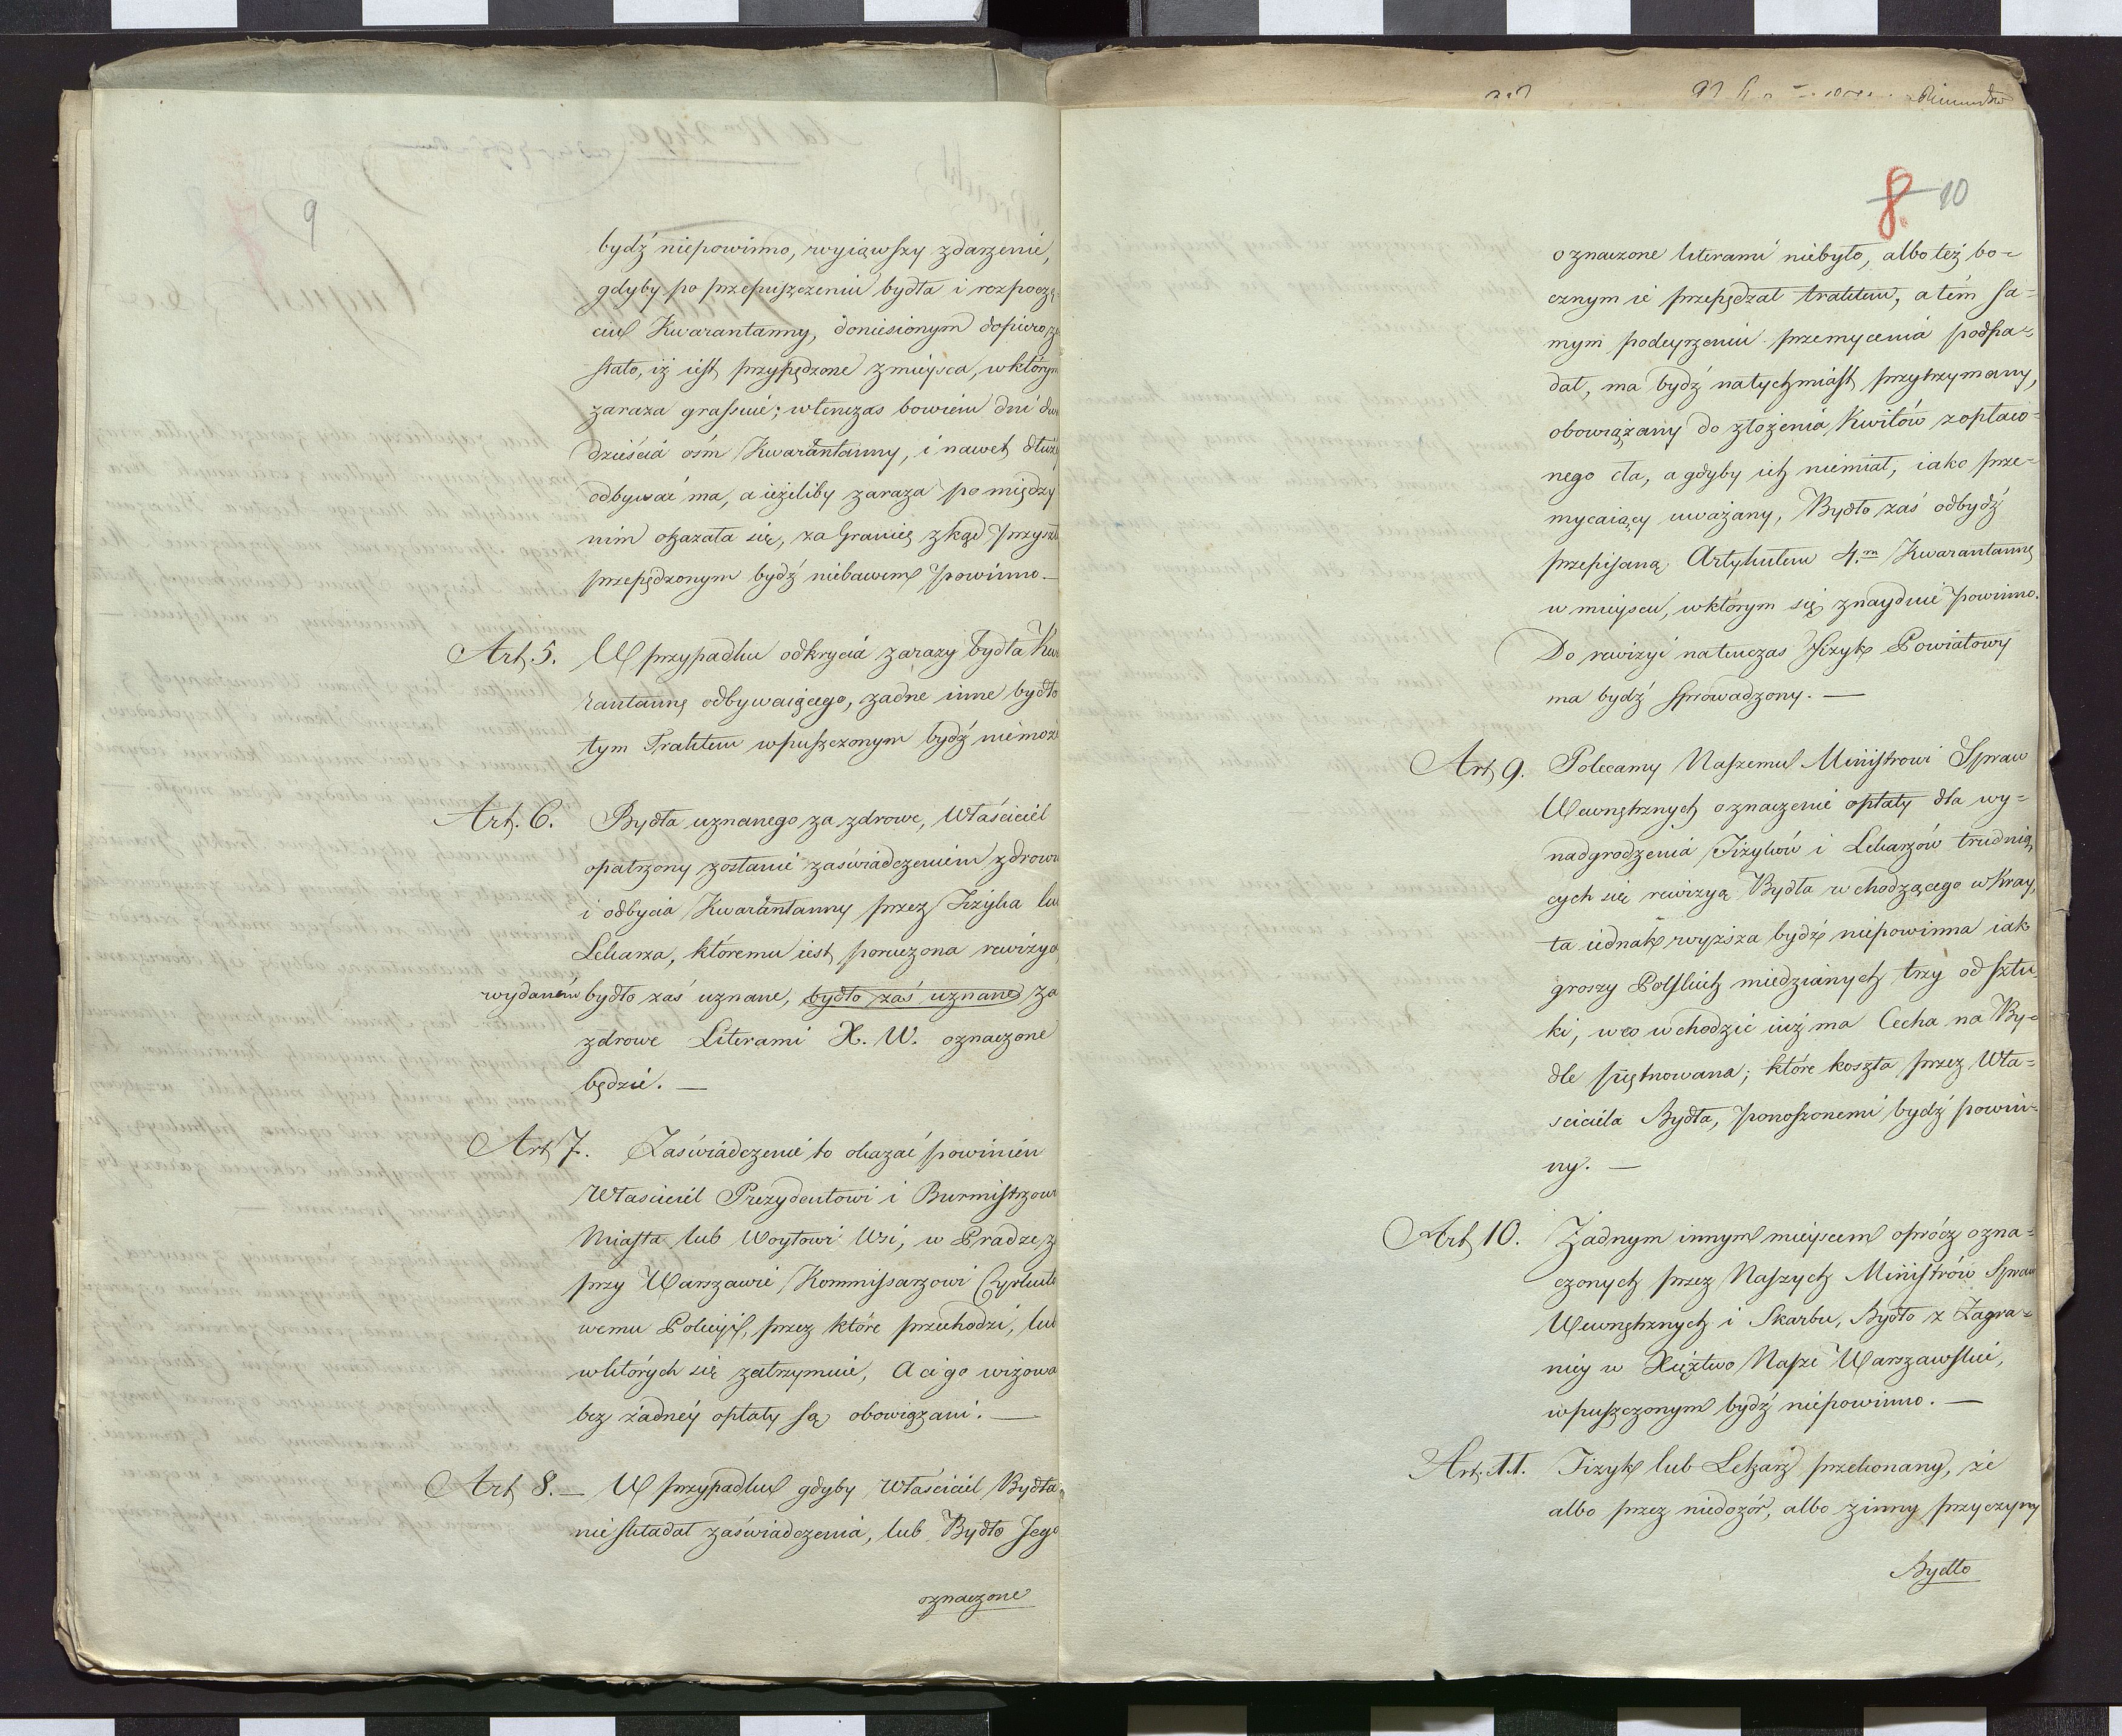 9
bydź niepowinno, wyiąwszy zdarzenie,
gdyby po przepuszczeniu bydła i rozpoczę-
ciu Kwarantanny, doniesionym dopiero zo
stało, iż iest przypędzone z mieysca, w którym
zaraza grassuie; wtenczas bowiem dni dwa
dzieścia ośm Kwarantanny, i nawet dłuży
odbywać ma, a ieżeliby zaraza pomiędzy
nim okazała się, za Granicę zkąd przyszło
przepędzonym bydź niebawem powinno. —
Art. 5. W przypadku odkrycia zarazy bydła Kwa
rantannę odbywaiącego, żadne inne bydło
tym Traktem wpuszczonym bydź niemoże
Art. 6. Bydła uznanego za zdrowe, Właściciel
opatrzony zostanie zaświadczeniem zdrowia
i odbycia Kwarantanny przez Fizyka lub
Lekarza, któremu iest poruczona rewizya
wydaném bydło zaś uznane, bydło zaś uznane za
zdrowe Literami X. W. oznaczone
będzie. —
Art 7. Zaświadczenie to okazać powinien
Właściciel Prezydentowi i Burmistrzowi
Miasta lub Woytowi Wsi, w Pradze z
przy Warszawie Kommissarzowi Cyrkuło
wemu Policyi, przez które przechodzi, lub
w których się zatrzymuie, a ci go wizować
bez żadnéy opłaty są obowiązani. —
Art 8. — W przypadku gdyby Właściciel Bydła
nie składał zaświadczenia, lub Bydło Jego
oznaczone
8. 10
oznaczone literami niebyło, albo też bo-
cznym ie przepędzał traktem, a tém sa-
mym podeyrzeniu przemycenia podpa-
dał, ma bydź natychmiast przytrzymany,
obowiązany do złożenia Kwitów z opłaco-
nego cła, a gdyby ich niemiał, iako prze-
mycaiący uważany, Bydło zaś odbydź
przepisaną Artykułem 4.m Kwarantannę
w mieyscu, w którym się znayduie powinno.
Do rewizyi natenczas Fizyk Powiatowy
ma bydź sprowadzony. —
Art 9. Polecamy Naszemu Ministrowi Spraw
Wewnętrznych oznaczenie opłaty dla wy-
nadgrodzenia Fizyków i Lekarzów trudnią
cych się rewizyą Bydła wchodzącego w Kray,
ta iednak wyższa bydź niepowinna iak
groszy Polskich miedzianych trzy od sztu
ki, w co wchodzić iuż ma Cecha na By-
dle piętnowana; które koszta przez Wła-
sciciela Bydła, ponoszonemi bydź powin-
ny. —
Art 10. Żadnym innym mieyscem oprócz ozna-
czonych przez Naszych Ministrów Spraw
Wewnętrznych i Skarbu, Bydło z Zagra-
nicy w Xięztwo Nasze Warszawskie,
wpuszczonym bydź niepowinno. —
Art. 11. Fizyk lub Lekarz przekonany, że
albo przez niedozór, albo z inny przyczyny
Bydło